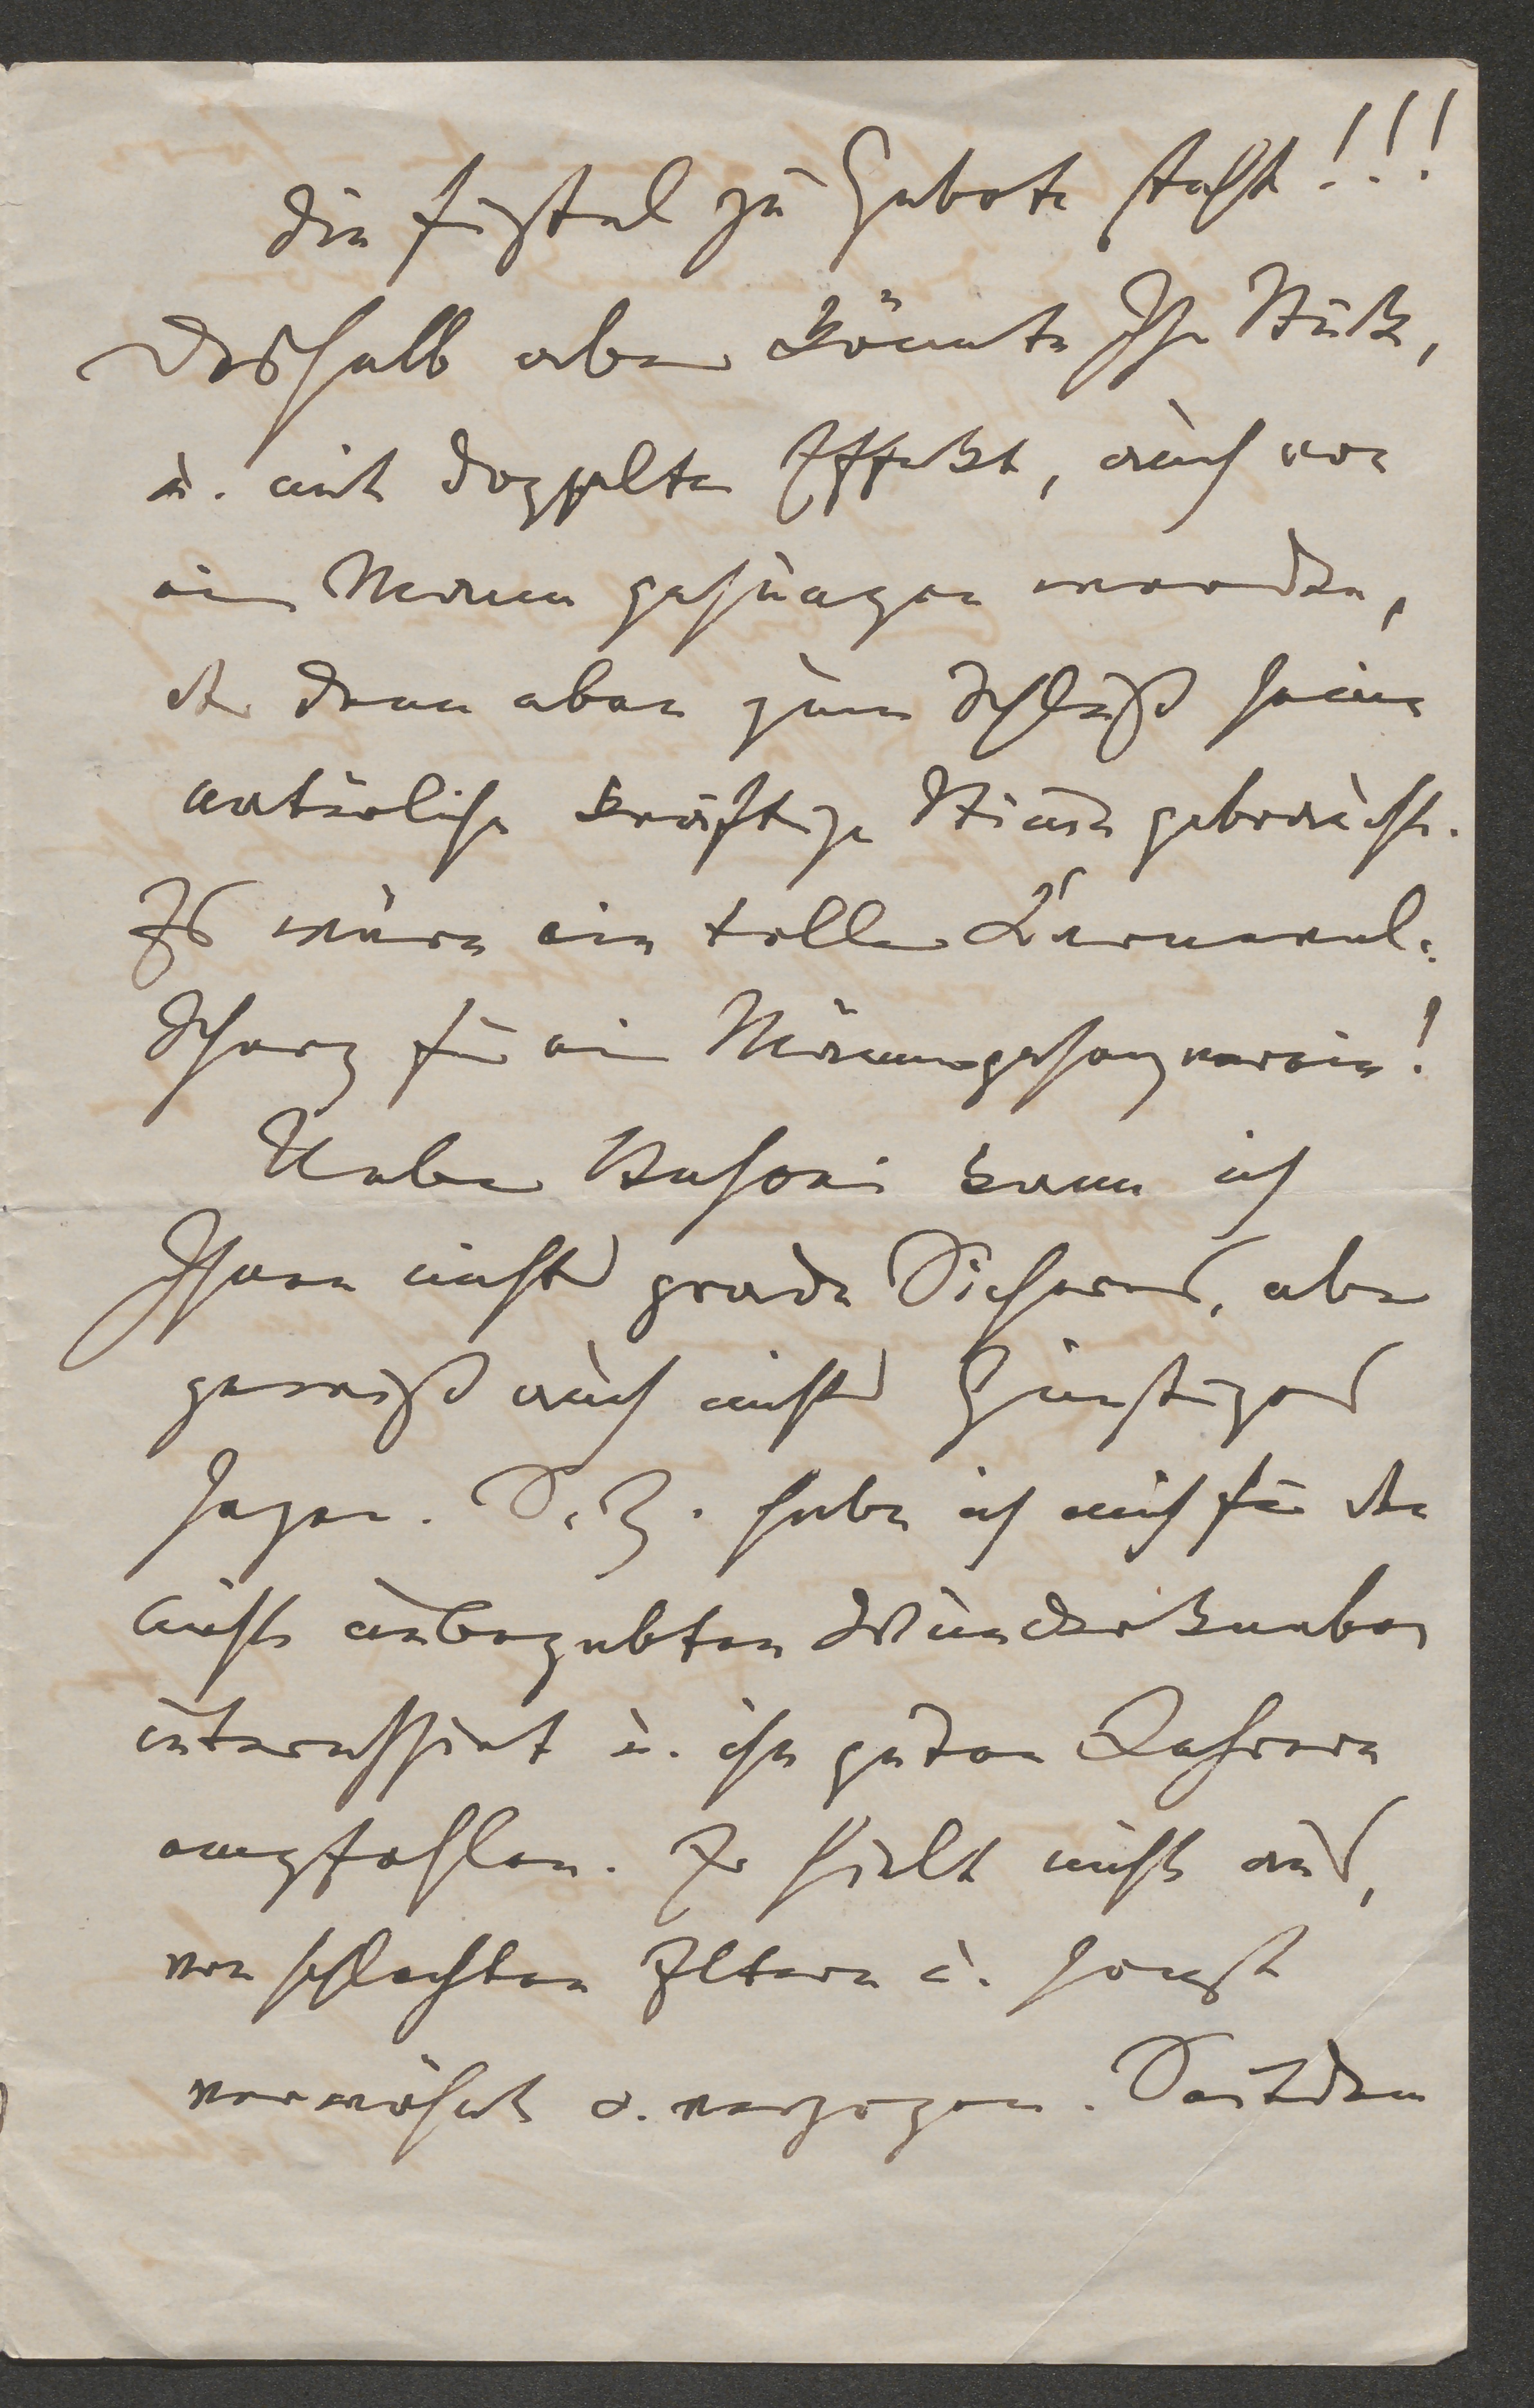 die Fistel zu Gebote steht!!!
Deßhalb aber könnte Ihr Stück,
u. mit doppeltem Effekt, auch von
ein Männern gesungen werden,
der dann aber zum Schluß seine
natürliche kräftige Stimme gebraucht.
Es wäre ein toller Karneval-
Scherz für ein Männergesangverein!
Ueber Busoni kann ich
Ihnen nichts grade Sicheres, aber
gewiß auch nichts Günstiges
sagen. S. Z. habe ich mich für den
nicht unbegabten Wunderknaben
interessirt u. ihn guten Lehrern
empfohlen. Er hielt nicht aus,
von schlechten Eltern u. sonst
verwöhnt u. verzogen. Seitdem